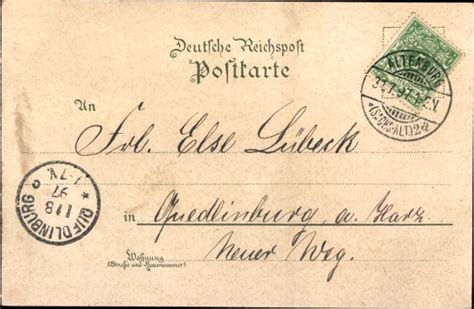 Deutsche Reichspost
Postkarte
ALTENBURG
31.7.97
(SACHS-ALT) 2a
An
Frl. Else Lübeck
QUEDLINBURG
1 8
97
7-N.
in Quedlinburg a. Harz
Neuer Weg.
Wohnung
(Straße und Hausnummer)